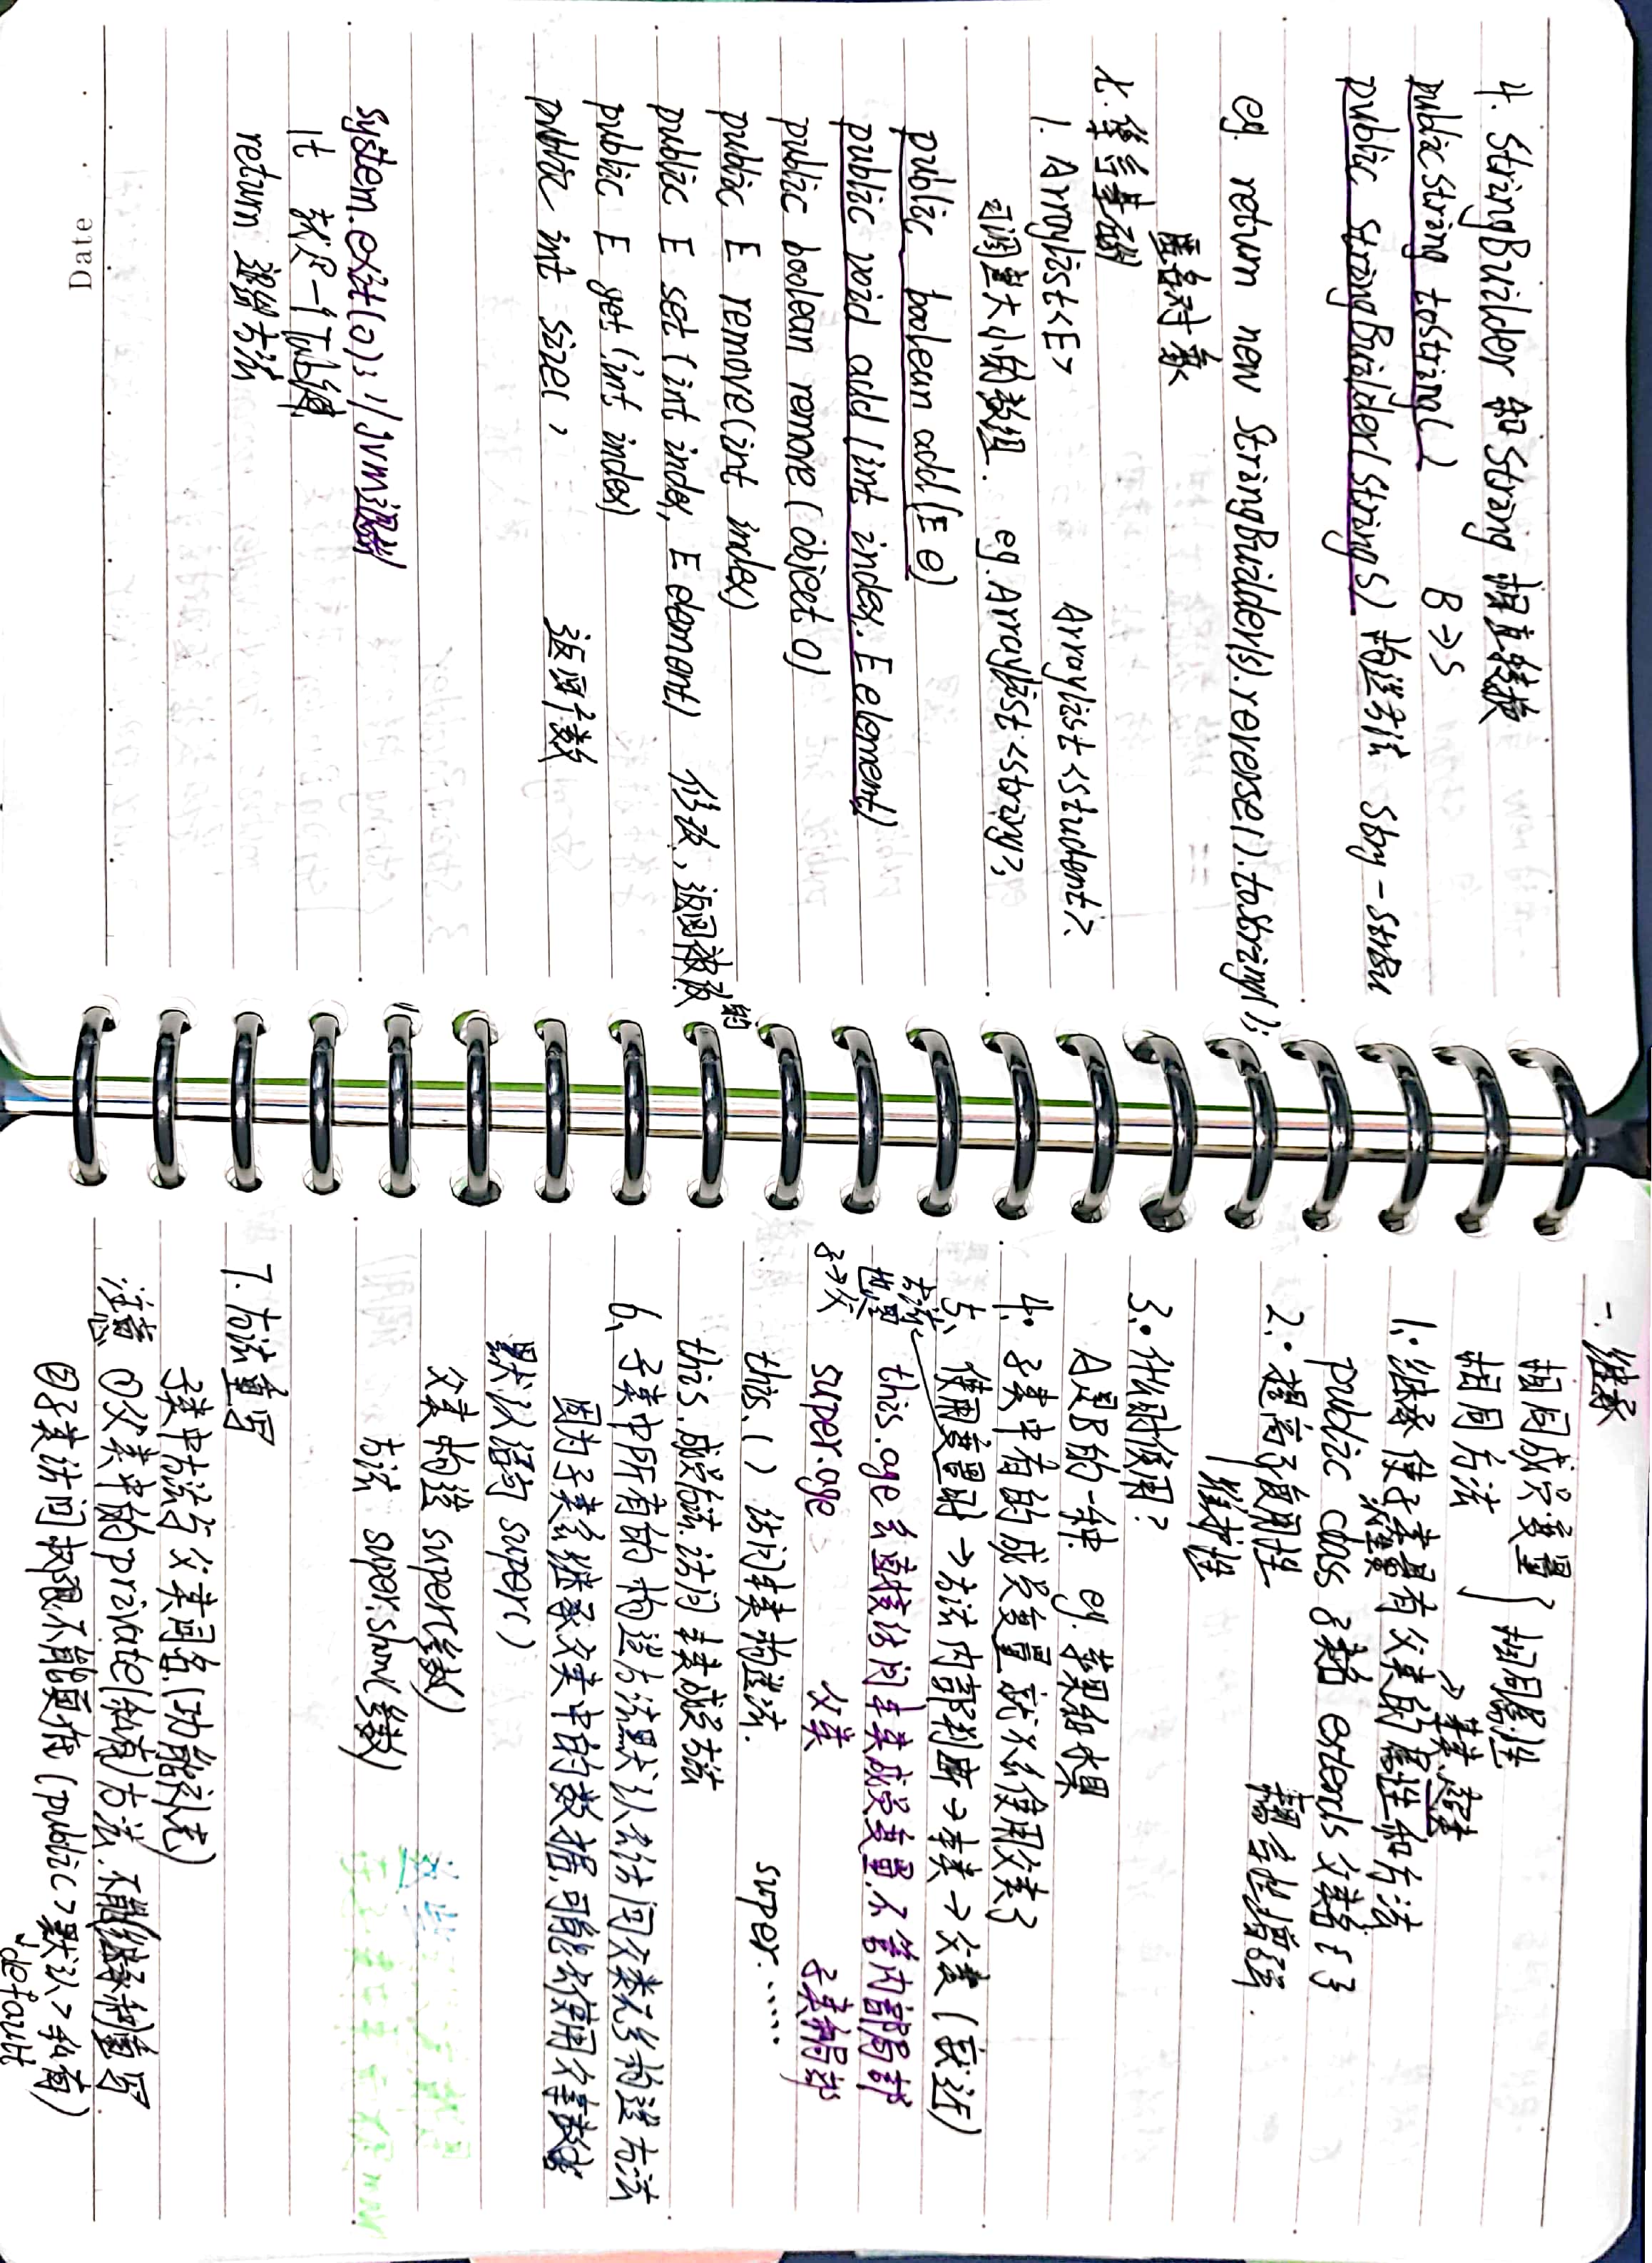 4. StringBuilder 和 String 相互转换
public String toString( ) B→S
public StringBuilder(String S) 构造方法 Stry-StrBu
eg. return new StringBuilder(s).reverse().toString();
匿名对象
七.集合基础
1. ArrayList<E> ArrayList<Student>.
可调整大小的数组. eg.ArrayList<string>,
public boolean add(E e)
public void add (int index, E element)
public boolean remove (object o)
public E remove(int index)
public E set (int index, E element) 修改,返回被改的
public E get (int index)
public int size( ) 返回个数
system.exit(0); // JVM退出
\t 就是一个Tab键
return 退出方法
Date
一.继承
相同成员变量
相同方法
相同属性
→基类、超类
1.继承使子类具有父类的属性和方法
派生类
public class 子类名 extends 父类名 { }
2.提高了复用性 耦合性增强.
维护性
3.什么时使用?
A是B的一种. eg.苹果和水果
4.子类中有的成员变量就不会使用父类了
5、使用变量时→方法内部判断→本类→父类(就近)
方法
也是
子→父
this.age 会直接访问本类成员变量.不管内部局部
super.age 父类 子类和局部
this.( ) 访问本类构造法. super.……
this.成员方法.访问本类成员方法
6、子类中所有的构造方法默认会访问父类无参构造方法
因为子类会继承父类中的数据,可能会使用父类数据
默认语句 super( )
父类构造 super(参数)
方法 super.show(参数)
这些
7.方法重写
子类中方法与父类同名.(功能补充)
注意 ①父类中的private(私有)方法.不能继承和重写
②子类访问权限不能更低 (public>默认>私有)
↓default